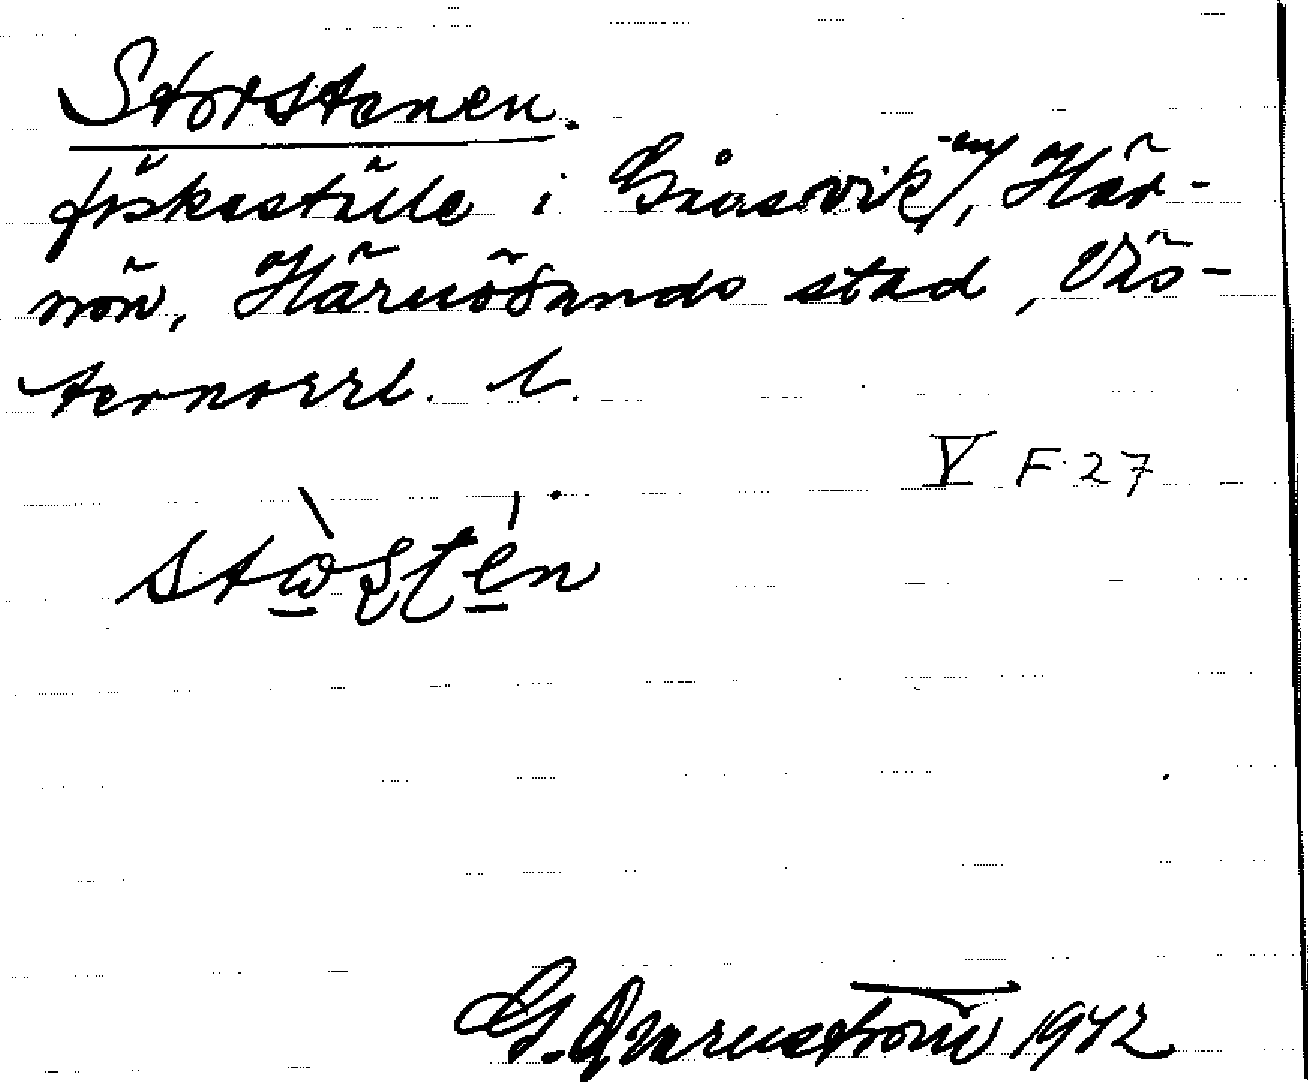 Storstenen.
fiskeställe i Gåsvik-en/, Här-
nön, Härnösands stad, Väs-
ternorrl. l.
V F 27
G. Qvarnström 1942